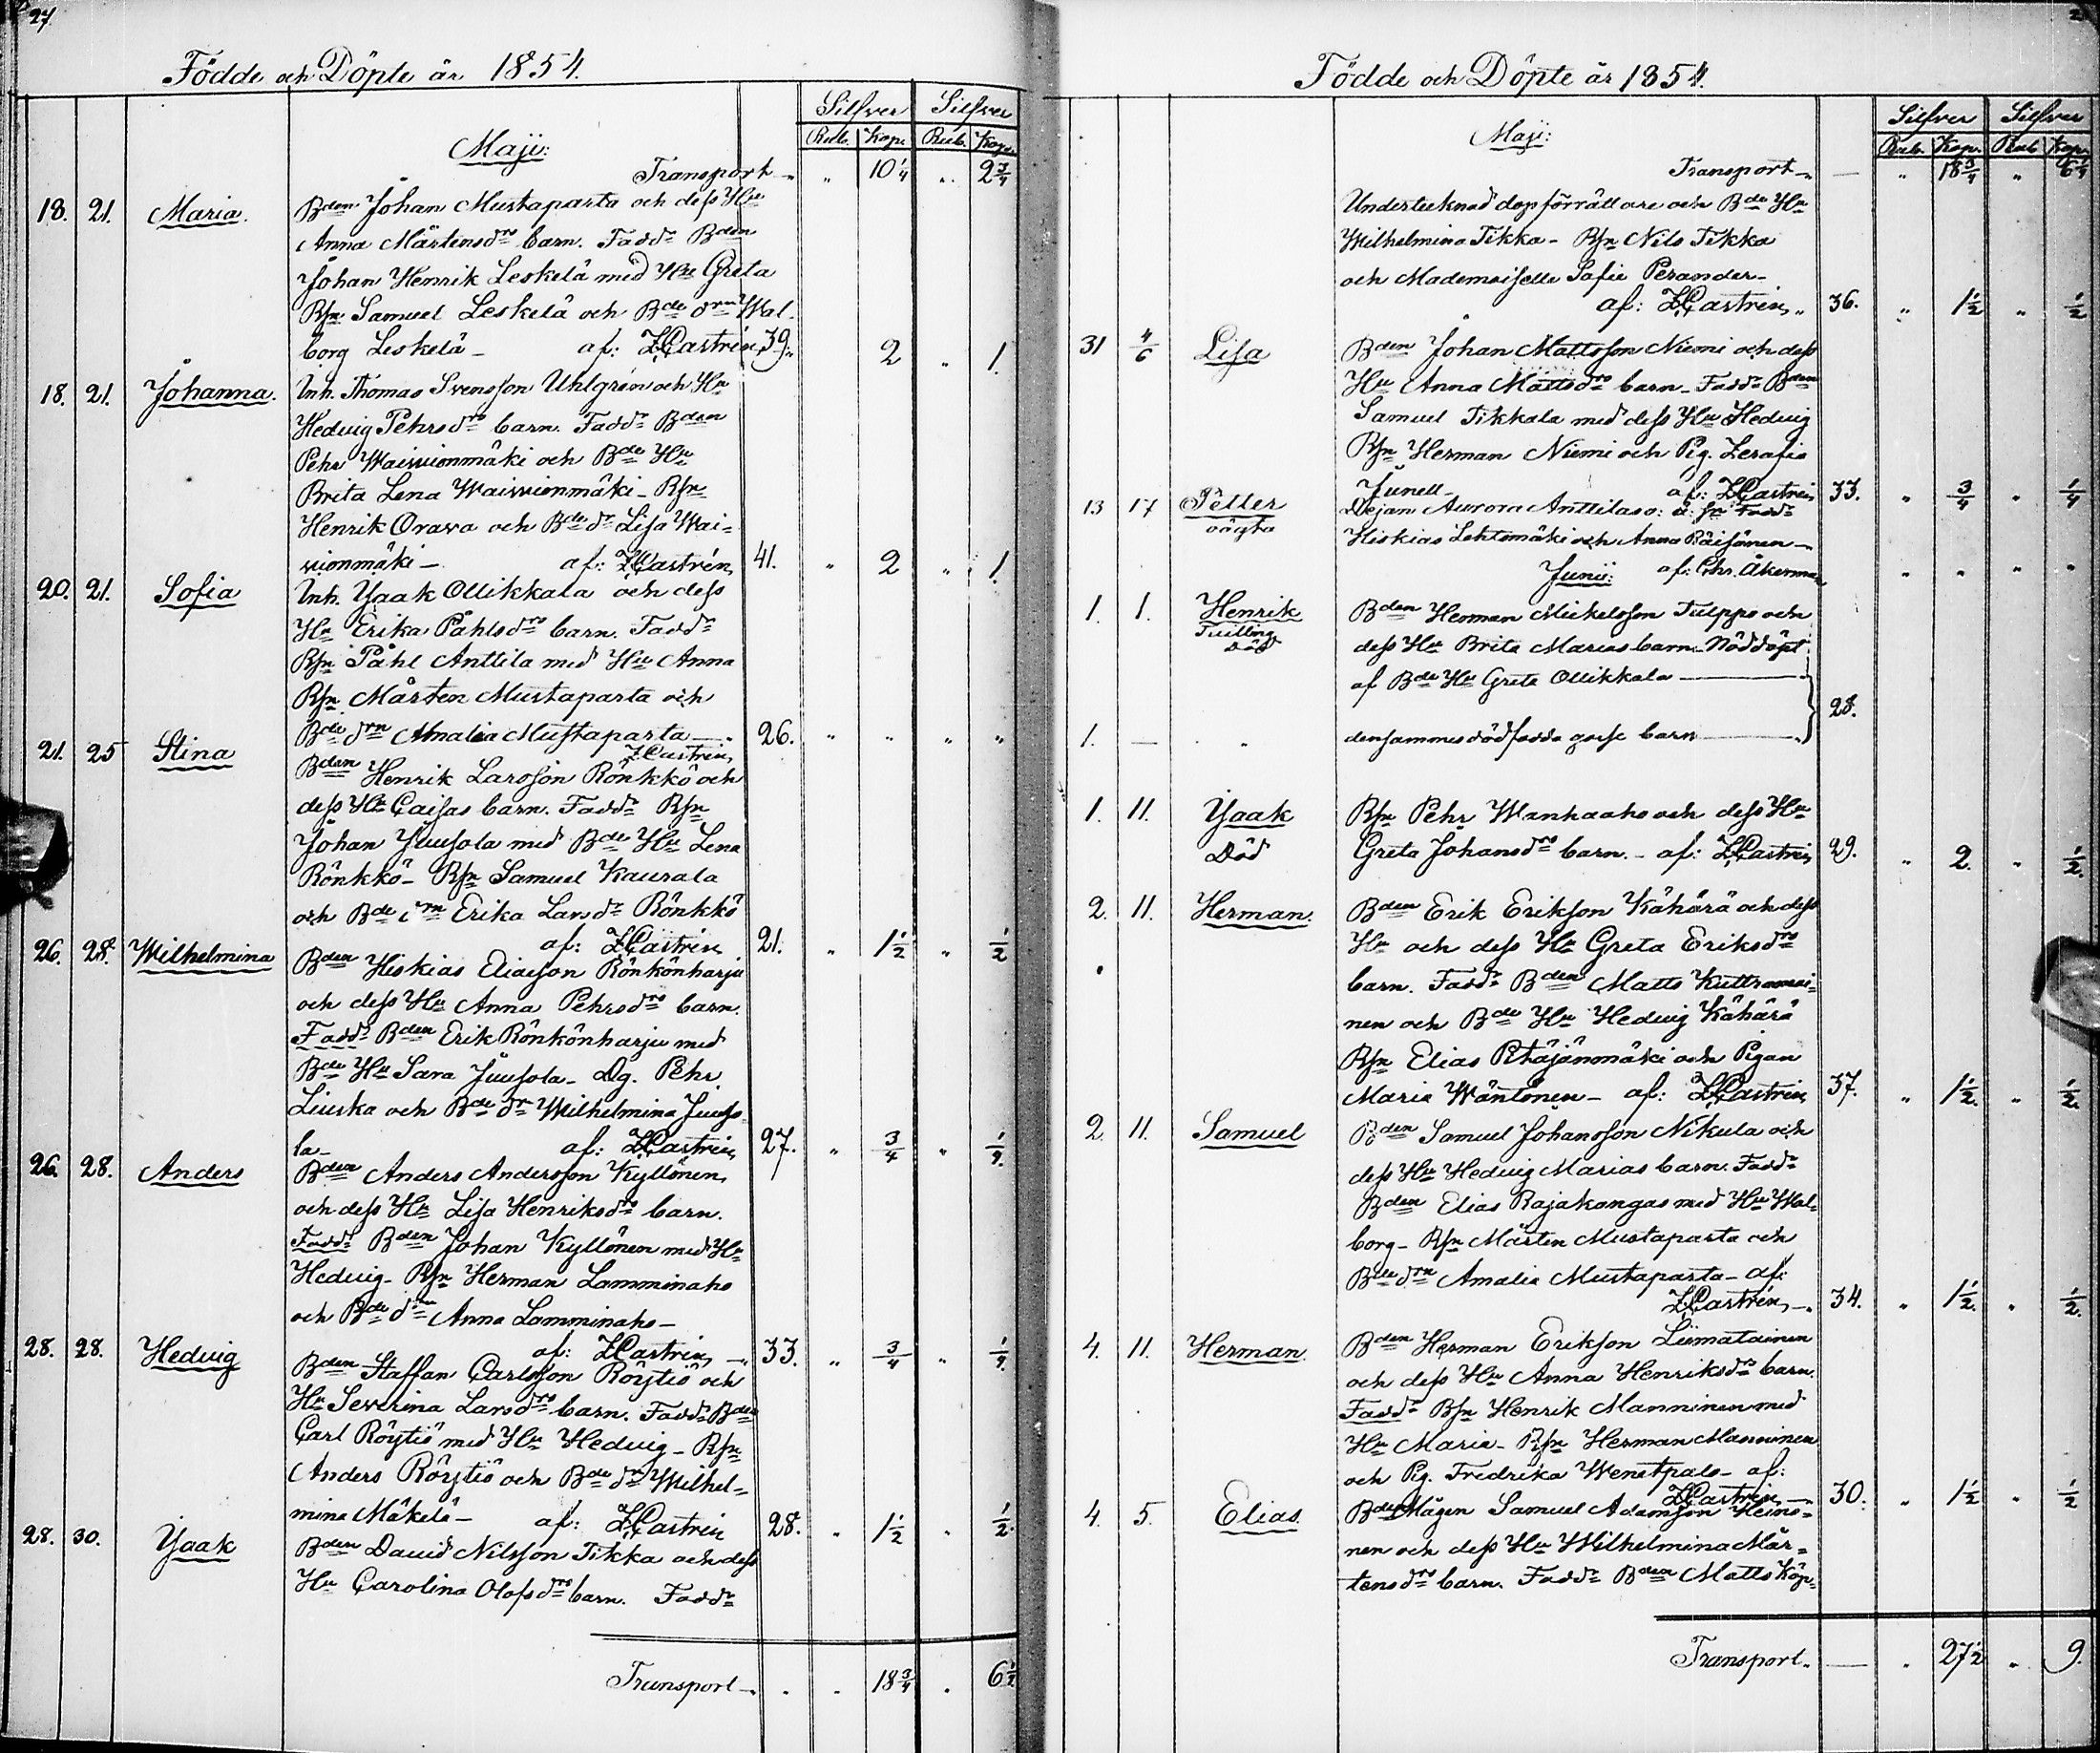 27
Födde och Döpte år 1854.
Silfver Silfver
Rub. Kop. Rub. Kop.
Maji:
Transport " 10 1/4 " 2 3/4
18. 21. Maria. Bden Johan Mustaparta och dess Hu
Anna Mårtensdrs barn. Faddr Bden
Johan Henrik Leskelä med Hu Greta
Bsn Samuel Leskelä och Bde drn Wal-
borg Leskelä – af: ZCastrén 39. 2 " 1.
18. 21. Johanna. Inh. Thomas Svensson Uhlgrén och Hu
Hedvig Pehrsdrs barn. Faddr Bden
Pehr Waivionmäki och Bde Hu
Brita Lena Waivionmäki – Bsn
Henrik Orava och Bde dr Lisa Wai=
vionmäki – af: ZCastrén 41. " 2 " 1.
20. 21. Sofia Inh. Isaak Ollikkala och dess
Hu Erika Påhlsdrs barn. Faddr
Bsn Påhl Anttila med Hu Anna
Bsn Mårten Mustaparta och
Bde drn Amalia Mustaparta – 26. " " " "
ZCastrén
21. 25 Stina Bden Henrik Larsson Rönkkö och
dess Hu Caisas barn. Faddr Bsn
Johan Juusola med Bde Hu Lena
Rönkkö – Bsn Samuel Kaurala
och Bde drn Erika Larsdr Rönkkö
af: ZCastrén 21. " 1 1/2 " 1/2
26. 28. Wilhelmina Bden Hiskias Eliasson Rönkönharju
och dess Hu Anna Pehrsdrs barn.
Faddr Bden Erik Rönkönharju med
Bde Hu Sara Juusola – Dg. Pehr
Liuska och Bde dr Wilhelmina Juuso-
la – af: ZCastrén 27. " 3/4 " 1/4.
26. 28. Anders Bden Anders Andersson Kyllönen
och dess Hu Lisa Henriksdrs barn.
Faddr Bden Johan Kyllönen med Hu
Hedvig – Bsn Herman Lamminaho
och Bde drn Anna Lamminaho –
af: ZCastrén – 33. " 3/4 " 1/4.
28. 28. Hedvig Bden Staffan Carlsson Röytiö och
Hu Severina Larsdrs barn. Faddr Bden
Carl Röytiö med Hu Hedvig – Bsn
Anders Röytiö och Bde dr Wilhel=
mina Mäkelä – af: ZCastrén 28. " 1 1/2 " 1/2.
28. 30. Isaak Bden David Nilsson Tikka och dess
Hu Carolina Olofsdrs barn. Faddr
Transport – " " 18 3/4 " 6 1/2
Födde och Döpte år 1854.
Silfver Silfver
Rub. Kop. Rub. Kop.
Maji:
Transport – — " 18 3/4 " 6 1/2
Undertecknad dopförrättare och Bde Hu
Wilhelmina Tikka – Bsn Nils Tikka
och Mademoiselle Sofie Perander –
af: ZCastrén " 36. " 1 1/2 " 1/2
31 4/6 Lisa Bden Johan Mattsson Niemi och dess
Hu Anna Mattsdrs barn – Faddr Bden
Samuel Tikkala med dess Hu Hedvig
Bsn Herman Niemi och Pig. Serafia
Junell – af: ZCastrén 33. " 3/4 " 1/4
13 17 Petter Dejan Aurora Anttilas o: ä: sn Faddr
oägta Hiskias Lehtomäki och Anna Räisänen –
Junii: af: Chr. Åkerman " " " "
1. 1. Henrik Bden Herman Mickelsson Tulppo och
Tvilling dess Hu Brita Marias barn – Nöddöpt
Död af Bde Hu Greta Ollikkala —
28.
1. — " densammes dödfödda gosse barn —
1. 11. Isaak Bsn Pehr Wanhaaho och dess Hu
Död Greta Johansdrs barn. – af: ZCastrén 29. " 2. " 1/2.
2. 11. Herman. Bden Erik Erikson Kähärä och dess
Hu och dess Hu Greta Eriksdrs
barn. Faddr Bden Matts Kuttramoi=
nen och Bde Hu Hedvig Kähärä
Bsn Elias Pehäjänmäki och Pigan
Maria Wäntönen – af: ZCastrén 37. " 1 1/2. " 1/2.
2. 11. Samuel Bden Samuel Johansson Nikula och
dess Hu Hedvig Marias barn. Faddr
Bden Elias Rajakangas med Hu Wal=
borg – Bsn Mårten Mustaparta och
Bde drn Amalia Mustaparta – af:
ZCastrén – 34. " 1 1/2. " 1/2.
4. 11. Herman. Bden Herman Erikson Liimatainen
och dess Hu Anna Henriksdrs barn.
Faddr Bsn Henrik Manninen med
Hu Maria – Bsn Herman Manninen
och Pig. Fredrika Wenetpalo – af:
ZCastrén – 30. " 1 1/2 " 1/2
4. 5. Elias. Bde Mågen Samuel Adamsson Heino=
nen och dess Hu Wilhelmina Mår=
tensdrs barn. Faddr Bden Matts Köp=
Transport. — " 27 1/2 " 9.